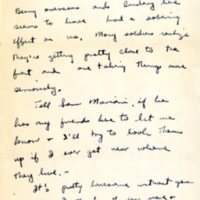 Being overseas and landing here
seems to have had a sobering
effort on us. Many soldiers realize
they're getting pretty close to the
front and are taking things more
seriously.
Tell Sam Mariani, if he
has any friends here to let me
know & I'll try to look them
up if I ever get near where
they live. –
It's pretty lonesome without you